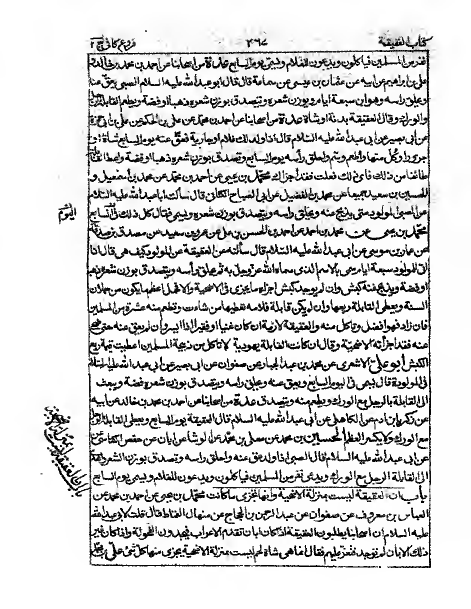 كتاب العقيقة
٣٦٧
فروع كافي ج ٢
نفر من المسلمين فياكلون ويدعون للغلام ويسمى يوم السابع عدة من اصحابنا عن احمد بن محمد بن خالد
عن ابيه عن عثمان بن عيسى عن سماعة قال قال ابو عبد الله عليه السلام الصبي يعق عنه
ويحلق راسه وهو ابن سبعة ايام ويوزن شعره ويتصدق بوزن شعره ذهبا او فضة ويطعم القابلة
والورك وقال العقيقة بدنة او شاة عدة من اصحابنا عن احمد بن محمد عن علي بن الحكم عن علي بن ابي حمزة
عن ابي بصير عن ابي عبد الله عليه السلام قال اذا ولد لك غلام او جارية فعق عنه يوم السابع شاة او
جزورا وكل منها واطعم وسم واحلق راسه يوم السابع وتصدق بوزن شعره ذهبا او فضة واعط القابلة
طائفا من ذلك فاي ذلك فعلت فقد اجزاك محمد بن يحيى عن احمد بن محمد عن محمد بن اسمعيل و
الحسين بن سعيد جميعا عن محمد بن الفضيل عن ابي الصباح الكناني قال سألت ابا عبد الله عليه السلام
عن الصبي المولود متى يذبح عنه ويحلق راسه ويتصدق بوزن شعره ويسمى فقال كل ذلك في السابع
اليوم
محمد بن يحيى عن محمد بن احمد عن احمد بن الحسن بن علي عن عمرو بن سعيد عن مصدق بن صدقة
عن عمار بن موسى عن ابي عبد الله عليه السلام قال سألته عن العقيقة عن المولود كيف هي قال اذا
اتى للمولود سبعة ايام سمي بالاسم الذي سماه الله عز وجل به ثم يحلق راسه ويتصدق بوزن شعره ذهبا
او فضة ويذبح عنه كبش وان لم يوجد كبش اجزاه ما يجزي في الاضحية والا فحمل اعظم ما يكون من حملان
السنة ويعطى القابلة ربعها وان لم يكن قابلة فلامه تعطيها من شاءت وتطعم منه عشرة من المسلمين
فان زادوا فهو افضل وتاكل منه والعقيقة لازمة ان كان غنيا او فقيرا اذا ايسر وان لم يعق عنه حتى ضحى
عنه فقد اجزاته الاضحية وقال ان كانت القابلة يهودية لا تاكل من ذبيحة المسلمين اعطيت قيمة ربع
الكبش ابو علي الاشعري عن محمد بن عبد الجبار عن صفوان عن ابي بصير عن ابي عبد الله عليه السلام
في المولود قال يسمى في اليوم السابع ويعق عنه ويحلق راسه ويتصدق بوزن شعره فضة ويبعث
الى القابلة بالرجل مع الورك ويطعم منه ويتصدق عدة من اصحابنا عن احمد بن محمد بن خالد عن ابيه
عن زكريا بن ادم عن الكاهلي عن ابي عبد الله عليه السلام قال العقيقة يوم السابع ويعطى القابلة الرجل
مع الورك ولا يكسر العظم الحسين بن محمد عن معلى بن محمد عن الوشا عن ابان عن حفص الكناسي عن
ابي عبد الله عليه السلام قال الصبي اذا ولد عق عنه وحلق راسه وتصدق بوزن الشعر
الى القابلة الرجل مع الورك ويدعى نفر من المسلمين فياكلون ويدعون للغلام ويسمى يوم السابع
باب ان العقيقة ليست بمنزلة الاضحية وانها تجزي ما كانت محمد بن يحيى عن احمد بن محمد عن
العباس بن معروف عن صفوان عن عبد الرحمن بن الحجاج عن منهال القماط قال قلت لابي عبد الله
عليه السلام ان اصحابنا يطلبون العقيقة اذا كان ابان تقدم الاعراب فيجدون الفحولة واذا كان غير
ذلك الابان لم توجد فتعز عليهم فقال انما هي شاة لحم ليست بمنزلة الاضحية يجزي منها كل شئ علي بن